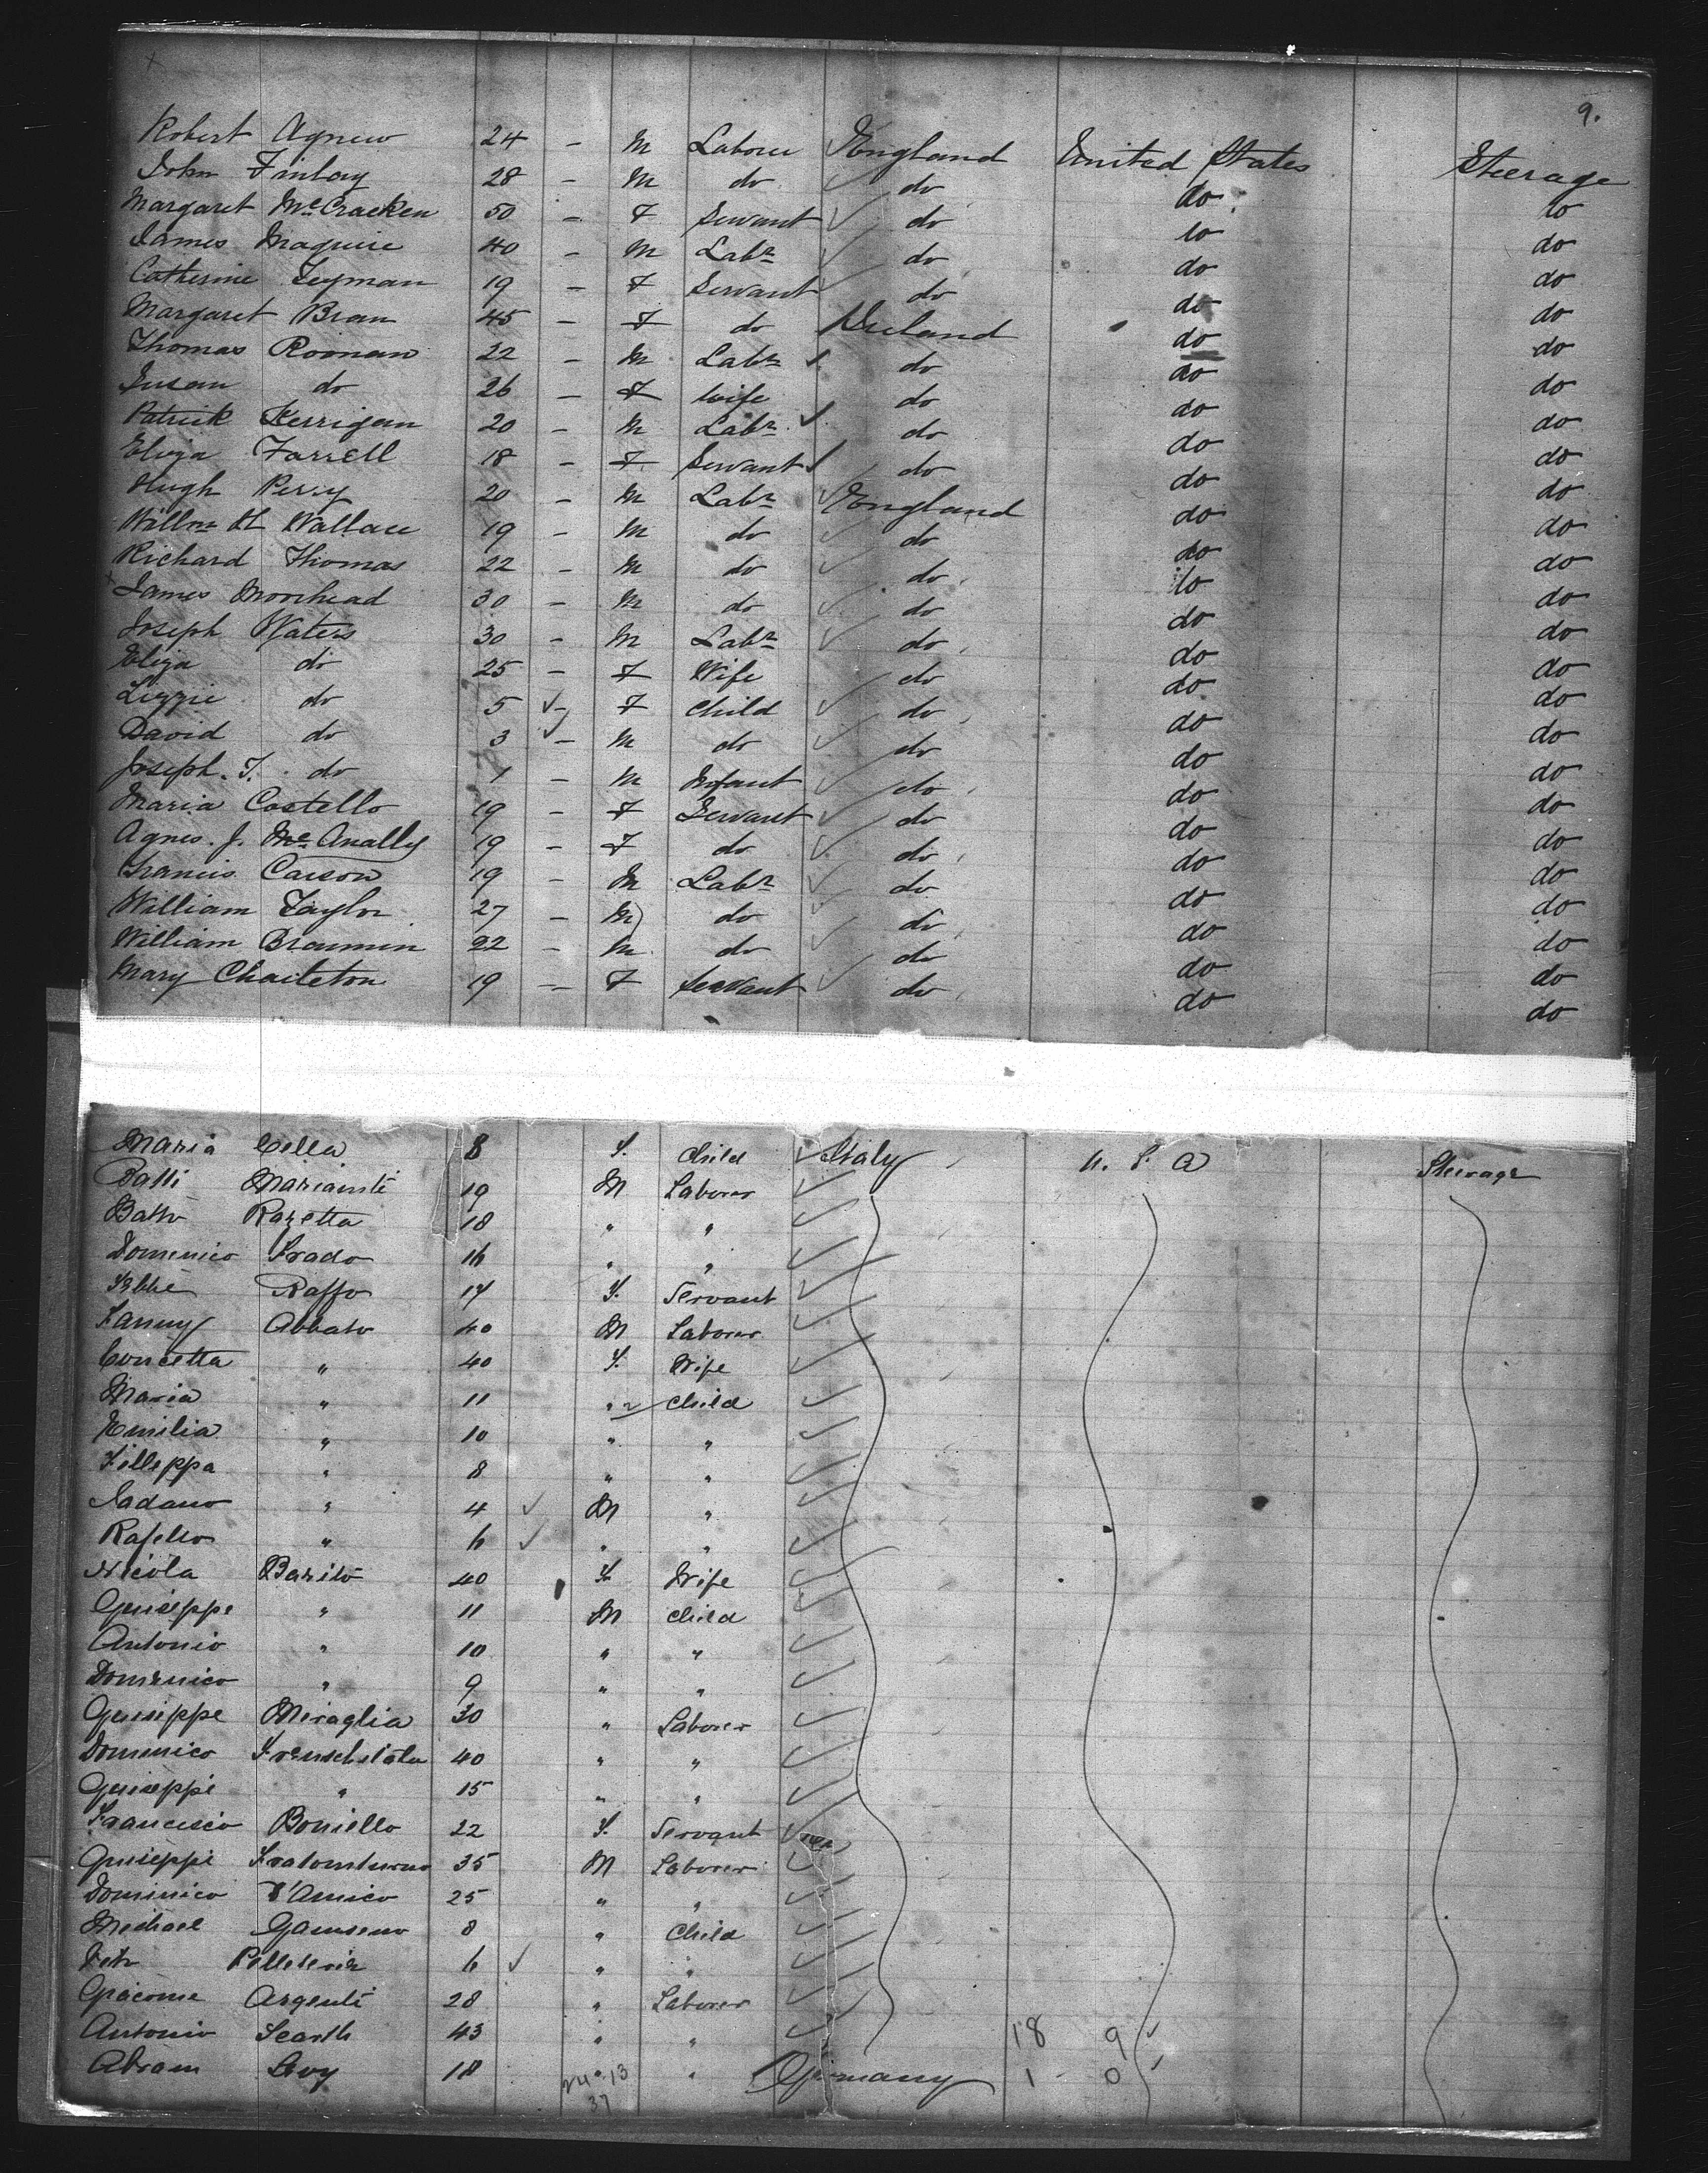 9.
Robert Agnew 24 - M Labourer England United States Steerage
John Finlay 28 - M do do do do
Margaret McCracken 50 - F Servant do do do
James Maguire 40 - M Labr do do do
Catherine 19 - F Servant do do do
Margaret Bran 45 - F do Ireland do do
Thomas Roonan 22 - M Labr do do do
Susan do 26 - F Wife do do do
Patrick Kerrigan 20 - M Labr do do do
Eliza Farrell 18 - F Servant do do do
Hugh Perry 20 - M Labr England do do
Willm H Wallace 19 - M do do do do
Richard Thomas 22 - M do do do do
James Moorhead 30 - M do do do do
Joseph Waters 30 - M Labr do do do
Eliza do 25 - F Wife do do do
Lizzie do 5 - F Child do do do
David do 3 - M do do do do
Joseph. T. do 1 - M Infant do do do
Maria Costello 19 - F Servant do do do
Agnes. J. McAnally 19 - F do do do do
Francis Carson 19 - M Labr do do do
William Taylor 27 - M do do do do
William 22 - M do do do do
Mary Charleton 19 - F Servant do do do
Maria Cella 8 F. Child Italy U. S. A Steerage
Batti 19 M Laborer
Batto Razetta 18 " "
Domenico Prado 16 " "
Raffo 14 F. Servant
Fanny Abbato 40 M Laborer
Concetta " 40 F. Wife
Maria " 11 " Child
Emilia " 10 " "
Filleppa " 8 " "
" 4 M "
Rafello " 6 " "
Nicola Barito 40 F. Wife
Guiseppe " 11 M Child
Antonio " 10 " "
Domenico " 9 " "
Guiseppe Miraglia 30 " Laborer
Domenico 40 " "
Guiseppi " 15 " "
Francisco Boniello 22 F. Servant
Guiseppi 35 M Laborer
Dominico D'Amico 25 " "
Michael 8 " Child
6 " "
Giacome Argenti 28 " Laborer
Antonio Scarth 43 " " 18 9
Abram Levy 18 " Germany 1 0
24 13
37